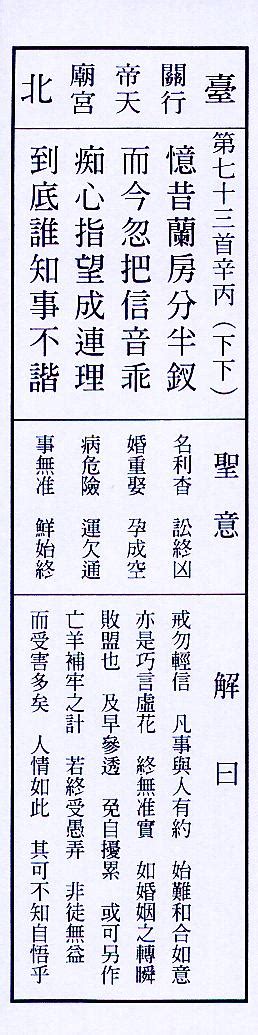 臺
北
行天宮
關帝廟
第七十三首辛丙(下下)
憶昔蘭房分半釵
而今忽把信音乖
痴心指望成連理
到底誰知事不諧
聖意
名利杳 訟終凶
婚重娶 孕成空
病危險 運欠通
事無准 鮮始終
解曰
戒勿輕信 凡事與人有約 始難和合如意
亦是巧言虛花 終無准實 如婚姻之轉瞬
敗盟也 及早參透 免自擾累 或可另作
亡羊補牢之計 若終受愚弄 非徒無益
而受害多矣 人情如此 其可不知自悟乎